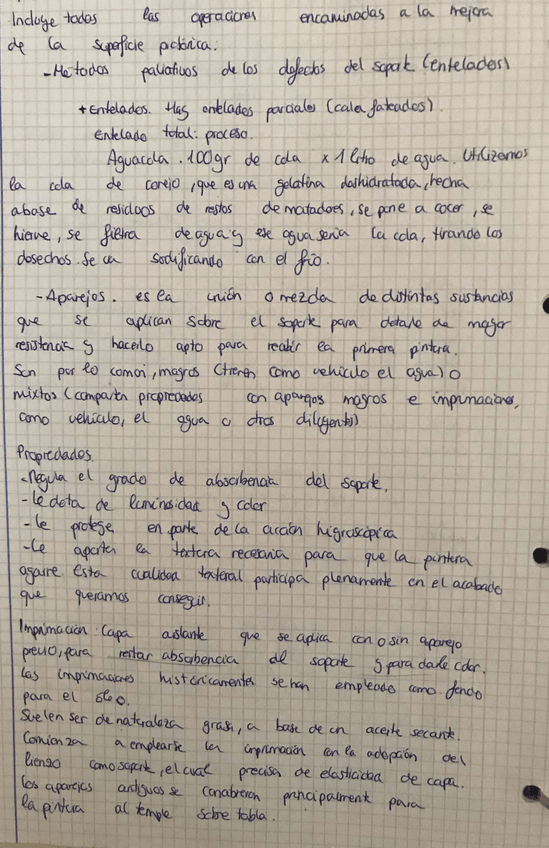 Incluye todas las operaciones encaminadas a la mejora
de la superficie pictórica.
- Metodos paliativos de los defectos del soporte (entelados)
+ Entelados. Hay entelados parciales (cala fateados).
Entelado total: proceso.
Aguacola. 100gr de cola x 1 litro de agua. Utilizamos
la cola de conejo, que es una gelatina deshidratada, hecha
a base de residuos de restos de mataderos, se pone a cocer, se
hierve, se filtra de agua y ese agua seria la cola, tirando los
desechos. Se va sodificando con el frio.
- Aparejos. es la unión o mezcla de distintas sustancias
que se aplican sobre el soporte para dotarle de mayor
resistencia y hacerlo apto para recibir la primera pintura.
Son por lo común, magros (tienen como vehiculo el agua) o
mixtos (comparten propiedades con aparejos magros e imprimaciones,
como vehiculo, el agua u otros diluyentes)
Propiedades.
- Regula el grado de absorbencia del soporte.
- Le dota de luminosidad y color
- Le protege en parte de la acción higroscópica
- Le aporta la textura necesaria para que la pintura
agarre. Esta cualidad textural participa plenamente en el acabado
que queramos conseguir.
Imprimación: Capa aislante que se aplica con o sin aparejo
previo, para restar absorbencia al soporte y para darle color.
Las imprimaciones históricamente se han empleado como fondo
para el óleo.
Suelen ser de naturaleza grasa, a base de un aceite secante.
Comienza a emplearse la imprimación con la adopción del
lienzo como soporte, el cual precisa de elasticidad de capa.
Los aparejos antiguos se concibieron principalmente para
la pintura al temple sobre tabla.